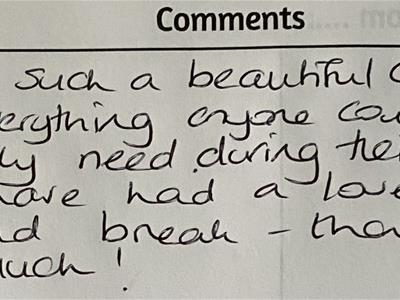 Comments
such a beautiful C
erything anyone cou
ly need during thei
have had a love
nd break – tha
uch!